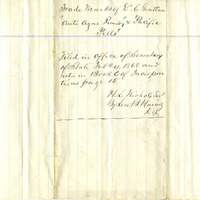 Trade Mark of D. C. Gratton
"Anti Ague Remedy & Pacific
Pills"
Filed in office of Secretary
of State Feb 4, 1868 and
note in Book 6 of Incorpora
tions page 18.
H. L. Nichols Sec
By Lew B Harris
D.S.